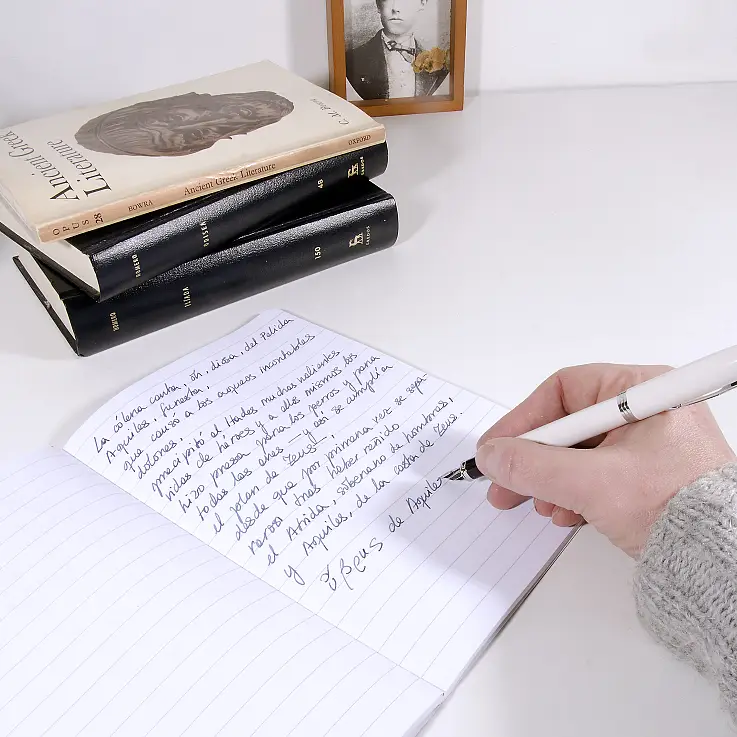 Ancient Greek
Literature
C. M. Bowra
OPUS 28 BOWRA Ancient Greek Literature OXFORD
HOMERO ODISEA 48 GREDOS
HOMERO ILÍADA 150 GREDOS
La cólera canta, oh, diosa, del Pelida
Aquiles, funesta,
que causó a los aqueos incontables
dolores,
precipitó al Hades muchas valientes
vidas de héroes y a ellos mismos los
hizo presa para los perros y para
todas las aves —y así se cumplía
el plan de Zeus—,
desde que por primera vez se sepa-
raron tras haber reñido
el Atrida, soberano de hombres,
y Aquiles, de la casta de Zeus.
de Aquiles